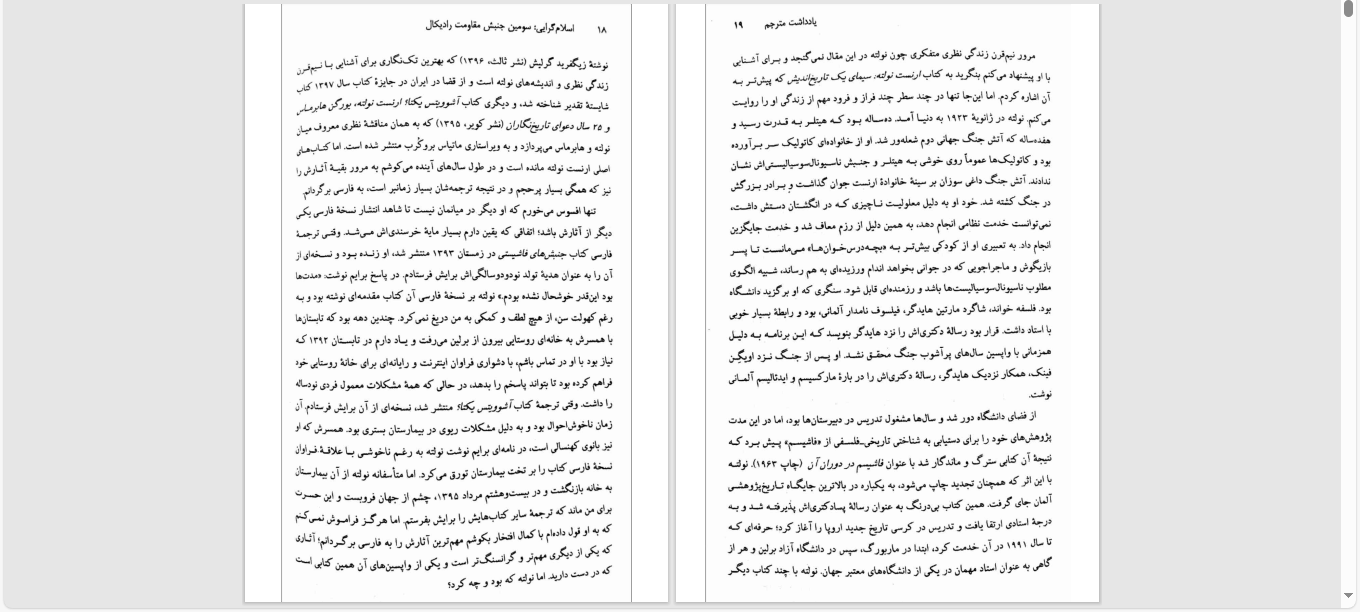 ۱۸ اسلام‌گرایی: سومین جنبش مقاومت رادیکال
نوشتهٔ زیگفرید گرلیش (نشر ثالث، ۱۳۹۶) که بهترین تک‌نگاری برای آشنایی با نیم‌قرن
زندگی نظری و اندیشه‌های نولته است و از قضا در ایران در جایزهٔ کتاب سال ۱۳۹۷ کتاب
شایستهٔ تقدیر شناخته شد، و دیگری کتاب آشوویتس یکتا؟ ارنست نولته، یورگن هابرماس
و ۲۵ سال دعوای تاریخ‌نگاران (نشر کویر، ۱۳۹۵) که به همان مناقشهٔ نظری معروف میان
نولته و هابرماس می‌پردازد و به ویراستاری ماتیاس بروکُرب منتشر شده است. اما کتاب‌های
اصلی ارنست نولته مانده است و در طول سال‌های آینده می‌کوشم به مرور بقیهٔ آثارش را
نیز که همگی بسیار پرحجم و در نتیجه ترجمه‌شان بسیار زمانبر است، به فارسی برگردانم.
تنها افسوس می‌خورم که او دیگر در میانمان نیست تا شاهد انتشار نسخهٔ فارسی یکی
دیگر از آثارش باشد؛ اتفاقی که یقین دارم بسیار مایهٔ خرسندی‌اش می‌شد. وقتی ترجمهٔ
فارسی کتاب جنبش‌های فاشیستی در زمستان ۱۳۹۳ منتشر شد، او زنده بود و نسخه‌ای از
آن را به عنوان هدیهٔ تولد نودودوسالگی‌اش برایش فرستادم. در پاسخ برایم نوشت: «مدت‌ها
بود این‌قدر خوشحال نشده بودم.» نولته بر نسخهٔ فارسی آن کتاب مقدمه‌ای نوشته بود و به
رغم کهولت سن، از هیچ لطف و کمکی به من دریغ نمی‌کرد. چندین دهه بود که تابستان‌ها
با همسرش به خانه‌ای روستایی بیرون از برلین می‌رفت و یاد دارم در تابستان ۱۳۹۲ که
نیاز بود با او در تماس باشم، با دشواری فراوان اینترنت و رایانه‌ای برای خانهٔ روستایی خود
فراهم کرده بود تا بتواند پاسخم را بدهد، در حالی که همهٔ مشکلات معمول فردی نودساله
را داشت. وقتی ترجمهٔ کتاب آشوویتس یکتا؟ منتشر شد، نسخه‌ای از آن برایش فرستادم. آن
زمان ناخوش‌احوال بود و به دلیل مشکلات ریوی در بیمارستان بستری بود. همسرش که او
نیز بانوی کهنسالی است، در نامه‌ای برایم نوشت نولته به رغم ناخوشی با علاقهٔ فراوان
نسخهٔ فارسی کتاب را بر تخت بیمارستان تورق می‌کرد. اما متأسفانه نولته از آن بیمارستان
به خانه بازنگشت و در بیست‌وهشتم مرداد ۱۳۹۵، چشم از جهان فروبست و این حسرت
برای من ماند که ترجمهٔ سایر کتاب‌هایش را برایش بفرستم. اما هرگز فراموش نمی‌کنم
که به او قول داده‌ام با کمال افتخار بکوشم مهم‌ترین آثارش را به فارسی برگردانم؛ آثاری
که یکی از دیگری مهم‌تر و گرانسنگ‌تر است و یکی از واپسین‌های آن همین کتابی است
که در دست دارید. اما نولته که بود و چه کرد؟
یادداشت مترجم ۱۹
مرور نیم‌قرن زندگی نظری متفکری چون نولته در این مقال نمی‌گنجد و برای آشنایی
با او پیشنهاد می‌کنم بنگرید به کتاب ارنست نولته: سیمای یک تاریخ‌اندیش که پیش‌تر به
آن اشاره کردم. اما این‌جا تنها در چند سطر چند فراز و فرود مهم از زندگی او را روایت
می‌کنم. نولته در ژانویهٔ ۱۹۲۳ به دنیا آمد. ده‌ساله بود که هیتلر به قدرت رسید و
هفده‌ساله که آتش جنگ جهانی دوم شعله‌ور شد. او از خانواده‌ای کاتولیک سر برآورده
بود و کاتولیک‌ها عموماً روی خوشی به هیتلر و جنبش ناسیونال‌سوسیالیستی‌اش نشان
ندادند. آتش جنگ داغی سوزان بر سینهٔ خانوادهٔ ارنست جوان گذاشت و برادر بزرگش
در جنگ کشته شد. خود او به دلیل معلولیت ناچیزی که در انگشتان دستش داشت،
نمی‌توانست خدمت نظامی انجام دهد، به همین دلیل از رزم معاف شد و خدمت جایگزین
انجام داد. به تعبیری او از کودکی بیش‌تر به «بچه‌درس‌خوان‌ها» می‌مانست تا پسر
بازیگوش و ماجراجویی که در جوانی بخواهد اندام ورزیده‌ای به هم رساند، شبیه الگوی
مطلوب ناسیونال‌سوسیالیست‌ها باشد و رزمنده‌ای قابل شود. سنگری که او برگزید دانشگاه
بود. فلسفه خواند، شاگرد مارتین هایدگر، فیلسوف نامدار آلمانی، بود و رابطهٔ بسیار خوبی
با استاد داشت. قرار بود رسالهٔ دکتری‌اش را نزد هایدگر بنویسد که این برنامه به دلیل
همزمانی با واپسین سال‌های پرآشوب جنگ محقق نشد. او پس از جنگ نزد اویگن
فینک، همکار نزدیک هایدگر، رسالهٔ دکتری‌اش را در بارهٔ مارکسیسم و ایدئالیسم آلمانی
نوشت.
از فضای دانشگاه دور شد و سال‌ها مشغول تدریس در دبیرستان‌ها بود، اما در این مدت
پژوهش‌های خود را برای دستیابی به شناختی تاریخی‌ـ‌فلسفی از «فاشیسم» پیش برد که
نتیجهٔ آن کتابی سترگ و ماندگار شد با عنوان فاشیسم در دوران آن (چاپ ۱۹۶۳). نولته
با این اثر که همچنان تجدید چاپ می‌شود، به یکباره در بالاترین جایگاه تاریخ‌پژوهشی
آلمان جای گرفت. همین کتاب بی‌درنگ به عنوان رسالهٔ پسادکتری‌اش پذیرفته شد و به
درجهٔ استادی ارتقا یافت و تدریس در کرسی تاریخ جدید اروپا را آغاز کرد؛ حرفه‌ای که
تا سال ۱۹۹۱ در آن خدمت کرد، ابتدا در ماربورگ، سپس در دانشگاه آزاد برلین و هر از
گاهی به عنوان استاد مهمان در یکی از دانشگاه‌های معتبر جهان. نولته با چند کتاب دیگر